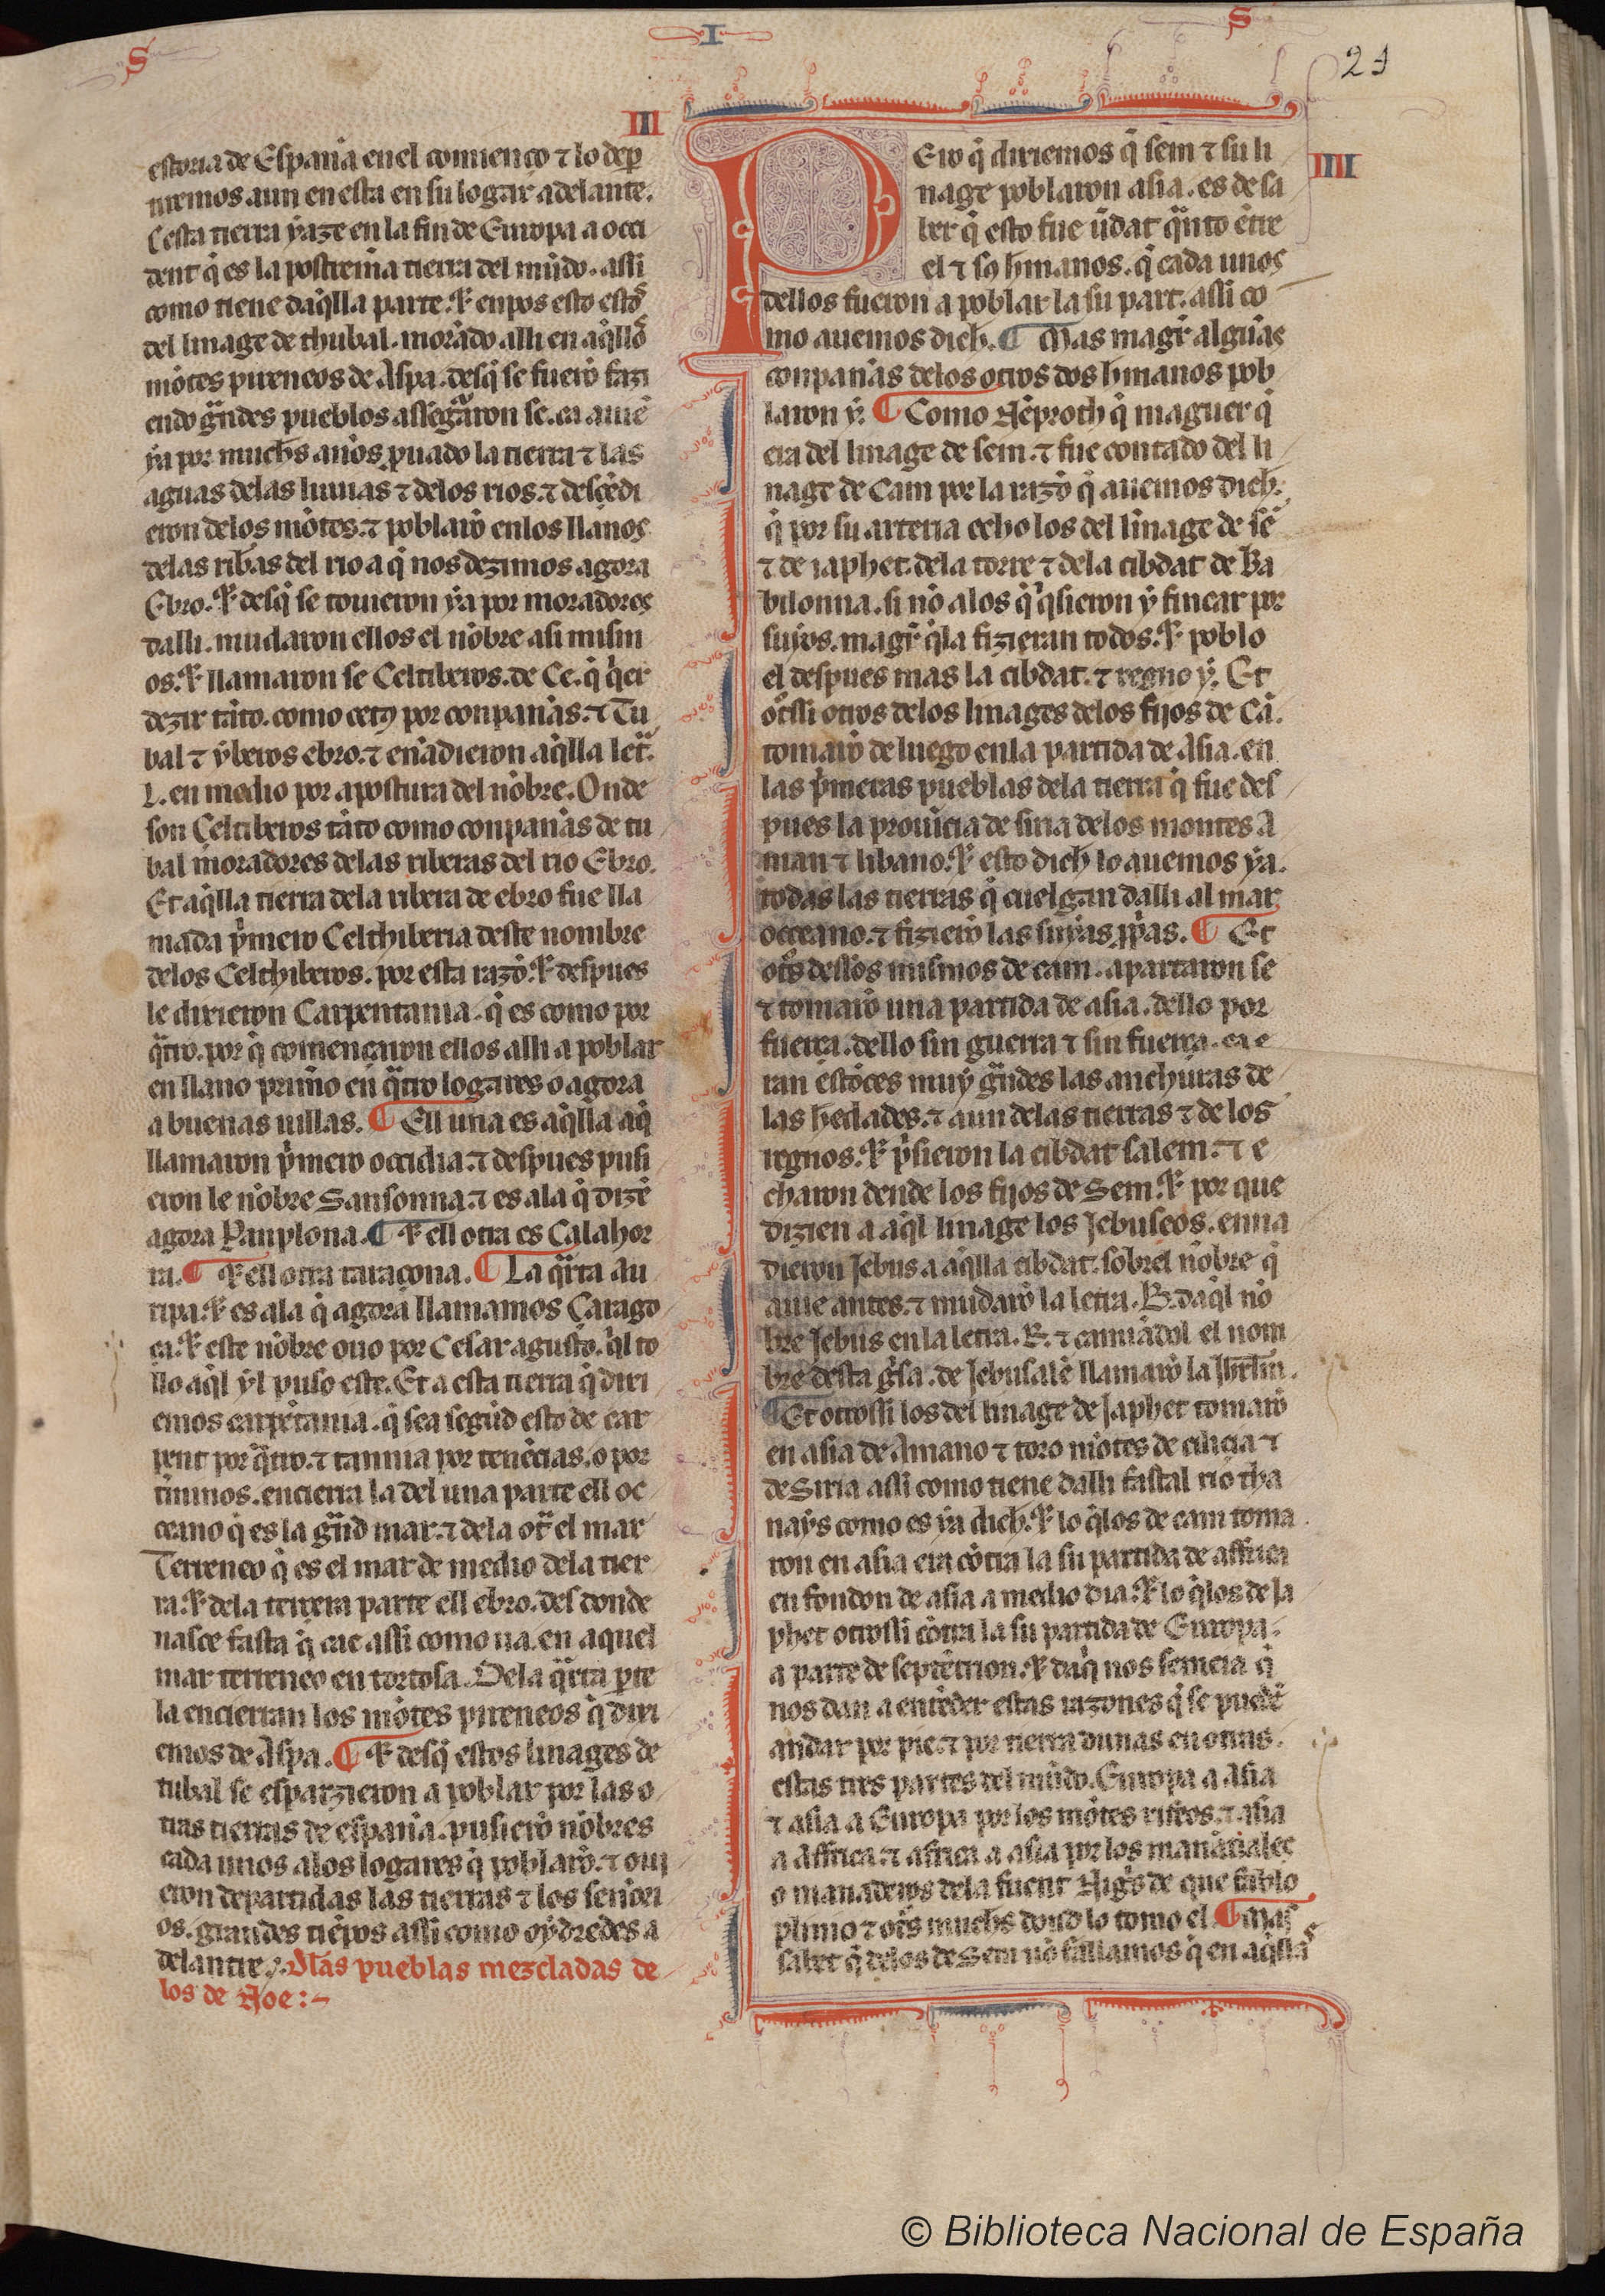 S
I
S
21
III
estoria de Espanna en el comienço ⁊ lo depꝑ
tiremos aun en esta en su logar adelante.
Cesta tierra yaze en la fin de Europa a occi
dent q̃ es la postremã tierra del mũdo. assi
como tiene daq̃lla parte. ⁊ enpos esto estõs
del linage de thubal. morãdo alli en aq̃llos
mõtes pireneos de Aspa. desq̃ se fuerõ fazi
endo grãdes pueblos assegãron se. ca auiẽ
ya por muchs anõs prouado la tierra ⁊ las
aguas delas lluuias ⁊ delos rios. ⁊ desçẽdi
eron delos mõtes. ⁊ poblarõ enlos llanos
delas ribas del rio a q̃ nos dezimos agora
Ebro. ⁊ desq̃ se touieron ya por moradores
dalli. mudaron ellos el nõbre asi mism
os. ⁊ llamaron se Celtiberos. de Ce. q̃ q̃er
dezir tãto. como cetꝯ por conpanãs. ⁊ Tu
bal ⁊ yberos ebro. ⁊ enãdieron aq̃lla letã.
L. en medio por apostura del nõbre. Onde
son Celtiberos tãto como conpanãs de tu
bal moradores delas riberas del rio Ebro.
Et aq̃lla tierra dela ribera de ebro fue lla
mada p̃mero Celthiberia deste nombre
delos Celthiberos. por esta razõ. ⁊ despues
le dixieron Carpentania. q̃ es como por
q̃tro. por q̃ començaron ellos alli a poblar
en llano primo en q̃tro logares o agora
a buenas uillas. ¶ Ell una es aq̃lla aq̃
llamaron p̃mero occidia. ⁊ despues pusi
eron le nõbre Sansonna. ⁊ es ala q̃ dizẽ
agora Panplona. ¶ ⁊ ell otra es Calahor
ra. ¶ ⁊ ell otra taraçona. ¶ La q̃rta Au
ripa. ⁊ es ala q̃ agora llamamos Çarago
ça. ⁊ este nõbre ouo por Cesar agusto. q̃l to
llo aq̃l yl puso este. Et a esta tierra q̃ dixi
emos carpẽtania. q̃ sea segũd esto de car
pent por q̃tro. ⁊ tannia por tenẽcias. o por
tẽminos. encierra la del una parte ell oc
ceano q̃ es la grãd mar. ⁊ dela otã el mar
Terreneo q̃ es el mar de medio dela tier
ra. ⁊ dela tercera parte ell ebro. des donde
nasce fasta q̃ cae assi como ua. en aquel
mar terreneo en tortosa. Dela q̃rta ꝑte
la encierran los mõtes pireneos q̃ dixi
emos de Aspa. ¶ ⁊ desq̃ estos linages de
tubal se esparzieron a poblar por las o
tras tierras de espanã. pusierõ nõbres
cada unos alos logares q̃ poblarõ. ⁊ oui
eron departidas las tierras ⁊ los senori
os. grandes tiẽpos assi como oydredes a
delantre. Dlas pueblas mezcladas de
los de Noe:~
IIII
Ero q̃ dixiemos q̃ sem ⁊ su li
nage poblaron asia. es de sa
ber q̃ esto fue ũdat q̃nto ẽtre
el ⁊ sꝯ hmanos. q̃ cada unos
dellos fueron a poblar la su part. assi co
mo auemos dich. ¶ Mas magr̃ algunas
conpanãs delos otros dos hmanos pob
laron y. ¶ Como Nẽproth q̃ maguer q̃
era del linage de sem. ⁊ fue contado del li
nage de Cam por la razõ q̃ auemos dich.
q̃ por su arteria echo los del linage de sẽ
⁊ de iaphet. dela torre ⁊ dela cibdat de Ba
bilonna. si nõ alos q̃ q̃sieron y fincar por
suyos. magr̃ q̃la fizieran todos. ⁊ poblo
el despues mas la cibdat. ⁊ regno y. Et
otr̃ssi otros delos linages delos fijos de Cã.
tomarõ de luego enla partida de Asia. en
las p̃meras pueblas dela tierra q̃ fue des
pues la prouĩcia de siria delos montes A
man ⁊ libano. ⁊ esto dich lo auemos ya.
todas las tierras q̃ cuelgan dalli al mar
occeano. ⁊ fizierõ las suyas ꝓpas. ¶ Et
otr̃s destos mismos de cam. apartaron se
⁊ tomarõ una partida de asia. dello por
fuerça. dello sin guerra ⁊ sin fuerça. ca e
ran estõces muy grãdes las anchuras de
las hedades. ⁊ aun delas tierras ⁊ de los
regnos. ⁊ p̃sieron la cibdat salem. ⁊ e
charon dende los fijos de Sem. ⁊ por que
dizien a aq̃l linage los Jebuseos. enna
dieron Jebus a aq̃lla cibdat. sobrel nõbre q̃
auie antes. ⁊ mudarõ la letra. B. daq̃l nõ
bre Jebus en la letra. R. ⁊ camiãdol el nom
bre desta g̃sa. de Jebusalẽ llamarõ la Jhrlm.
¶ Et otrossi los del linage de Japhet tomarõ
en asia de Amano ⁊ toro mõtes de cilicia ⁊
de Siria assi como tiene dalli fastal rio tha
nays como es ya dich. ⁊ lo q̃los de cam toma
ron en asia era cõtra la su partida de affrica
en fondon de asia a medio dia. ⁊ lo q̃los de Ja
phet otrossi cõtra la su partida de Europa.
a parte de septẽtrion. ⁊ daq̃ nos semeia q̃
nos dan a entẽder estas razones q̃ se puedẽ
andar por pie. ⁊ por tierra dunas en otras.
estas tres partes del mũdo. Europa a Asia
⁊ asia a Europa por los mõtes rifeos. ⁊ asia
a Affrica. ⁊ africa a asia por los manãtiales
o manaderos dela fuent Nigris de que fablo
plinio ⁊ otr̃s muchs dond lo tomo el. ¶ Mas
sabet q̃ delos de Sem nõ fallamos q̃ en aq̃llas
© Biblioteca Nacional de España